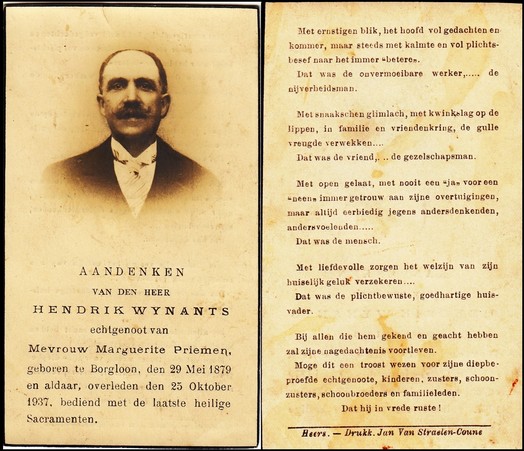 AANDENKEN
VAN DEN HEER
HENDRIK WYNANTS
echtgenoot van
Mevrouw Marguerite Priemen,
geboren te Borgloon, den 29 Mei 1879
en aldaar, overleden den 25 Oktober
1937, bediend met de laatste heilige
Sacramenten.
Met ernstigen blik, het hoofd vol gedachten en
kommer, maar steeds met kalmte en vol plichts-
besef naar het immer "betere„.
Dat was de onvermoeibare werker,..... de
nijverheidsman.
Met snaakschen glimlach, met kwinkslag op de
lippen, in familie en vriendenkring, de gulle
vreugde verwekken....
Dat was de vriend,... de gezelschapsman.
Met open gelaat, met nooit een "ja„ voor een
"neen„ immer getrouw aan zijne overtuigingen,
maar altijd eerbiedig jegens andersdenkenden,
andersvoelenden.....
Dat was de mensch.
Met liefdevolle zorgen het welzijn van zijn
huiselijk geluk verzekeren....
Dat was de plichtbewuste, goedhartige huis-
vader.
Bij allen die hem gekend en geacht hebben
zal zijne nagedachtenis voortleven.
Moge dit een troost wezen voor zijne diepbe-
proefde echtgenoote, kinderen, zusters, schoon-
zusters, schoonbroeders en familieleden.
Dat hij in vrede ruste !
Heers. — Drukk. Jan Van Straelen-Coune